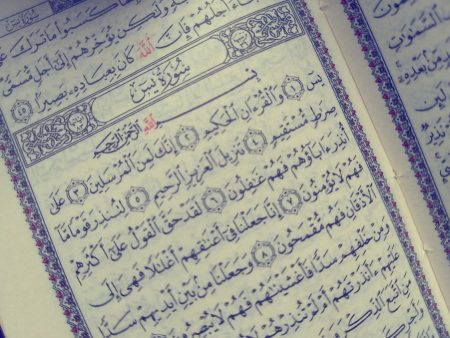 كسبوا ما ترك
ولكن يؤخرهم إلى أجل مسمى
أجلهم فإن الله كان بعباده بصيرا ٤٥
سورة يس
بسم الله الرحمن الرحيم
يس ١ والقرءان الحكيم ٢ إنك لمن المرسلين ٣ على
صرٰط مستقيم ٤ تنزيل العزيز الرحيم ٥ لتنذر قوما ما
أنذر ءاباؤهم فهم غٰفلون ٦ لقد حق القول على أكثرهم
فهم لا يؤمنون ٧ إنا جعلنا فى أعنٰقهم أغلٰلا فهى إلى
الأذقان فهم مقمحون ٨ وجعلنا من بين أيديهم سدا
ومن خلفهم سدا فأغشينٰهم فهم لا يبصرون
عليهم ءأنذرتهم أم لم تنذرهم لا
من اتبع الذكر
السمٰوٰت
من بعده